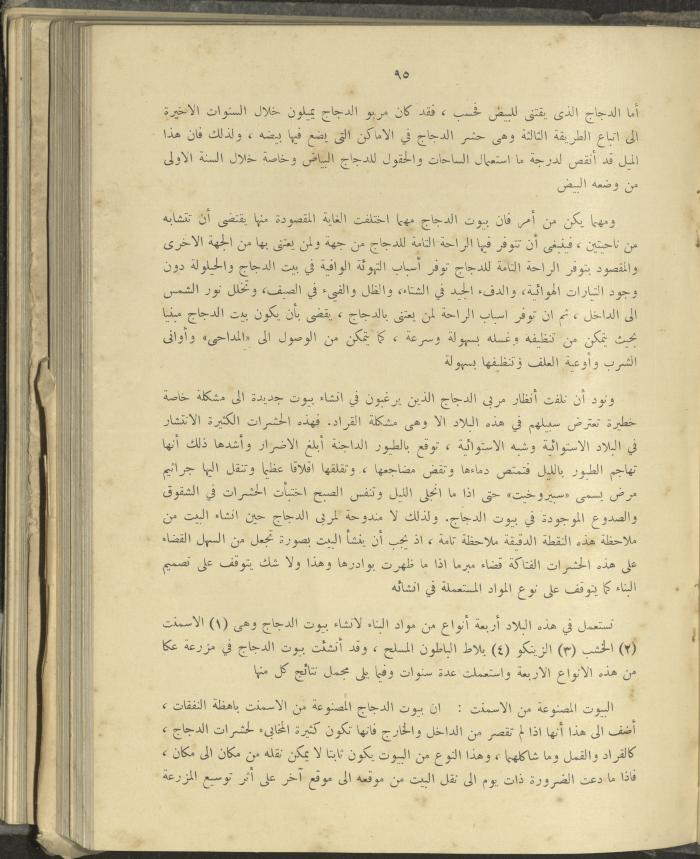 ٩٥
أما الدجاج الذى يقتنى للبيض فحسب ، فقد كان مربو الدجاج يميلون خلال السنوات الاخيرة
الى اتباع الطريقة الثالثة وهى حشر الدجاج في الاماكن التى يضع فيها بيضه ، ولذلك فان هذا
الميل قد أنقص لدرجة ما استعمال الساحات والحقول للدجاج البياض وخاصة خلال السنة الاولى
من وضعه البيض
ومهما يكن من أمر فان بيوت الدجاج مهما اختلفت الغاية المقصودة منها يقتضى أن تتشابه
من ناحيتين ، فينبغى أن تتوفر فيها الراحة التامة للدجاج من جهة ولمن يعتنى بها من الجهة الاخرى
والمقصود بتوفر الراحة التامة للدجاج توفر أسباب التهوئة الوافية في بيت الدجاج والحيلولة دون
وجود التيارات الهوائية، والدفء الجيد في الشتاء، والظل والفيء في الصيف، وتخلل نور الشمس
الى الداخل ، ثم ان توفر اسباب الراحة لمن يعتنى بالدجاج ، يقضى بأن يكون بيت الدجاج مبنيا
بحيث يتمكن من تنظيفه وغسله بسهولة وسرعة ، كما يتمكن من الوصول الى «المداحى» وأوانى
الشرب وأوعية العلف وتنظيفها بسهولة
ونود أن نلفت أنظار مربى الدجاج الذين يرغبون في انشاء بيوت جديدة الى مشكلة خاصة
خطيرة تعترض سبيلهم في هذه البلاد الا وهى مشكلة القراد. فهذه الحشرات الكثيرة الانتشار
في البلاد الاستوائية وشبه الاستوائية ، توقع بالطيور الداجنة أبلغ الاضرار وأشدها ذلك أنها
تهاجم الطيور بالليل فتمتص دماءها وتقض مضاجعها ، وتقلقها اقلاقا عظيما وتنقل اليها جراثيم
مرض يسمى «سبيروخيت» حتى اذا ما انجلى الليل وتنفس الصبح اختبأت الحشرات في الشقوق
والصدوع الموجودة في بيوت الدجاج. ولذلك لا مندوحة لمربى الدجاج حين انشاء البيت من
ملاحظة هذه النقطة الدقيقة ملاحظة تامة ، اذ يجب أن ينشأ البيت بصورة تجعل من السهل القضاء
على هذه الحشرات الفتاكة قضاء مبرما اذا ما ظهرت بوادرها وهذا ولا شك يتوقف على تصميم
البناء كما يتوقف على نوع المواد المستعملة في انشائه
تستعمل في هذه البلاد أربعة أنواع من مواد البناء لانشاء بيوت الدجاج وهى (١) الاسمنت
(٢) الخشب (٣) الزينكو (٤) بلاط الباطون المسلح ، وقد أنشئت بيوت الدجاج في مزرعة عكا
من هذه الانواع الاربعة واستعملت عدة سنوات وفيما يلى مجمل نتائج كل منها
البيوت المصنوعة من الاسمنت : ان بيوت الدجاج المصنوعة من الاسمنت باهظة النفقات ،
أضف الى هذا أنها اذا لم تقصر من الداخل والخارج فانها تكون كثيرة المخابىء لحشرات الدجاج ،
كالقراد والقمل وما شاكلهما ، وهذا النوع من البيوت يكون ثابتا لا يمكن نقله من مكان الى مكان ،
فاذا ما دعت الضرورة ذات يوم الى نقل البيت من موقعه الى موقع آخر على أثر توسيع المزرعة